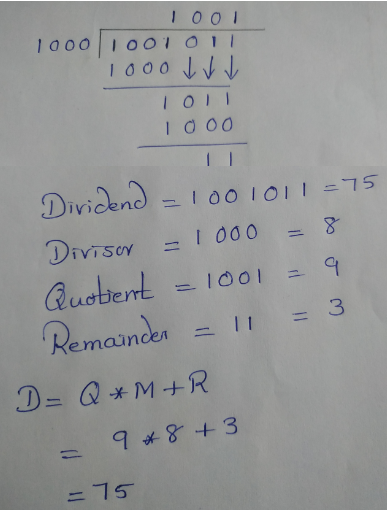 1001
1000 1001011
1000 ↓↓↓
1011
1000
11
Dividend = 1001011 = 75
Divisor = 1000 = 8
Quotient = 1001 = 9
Remainder = 11 = 3
D = Q * M + R
= 9 * 8 + 3
= 75